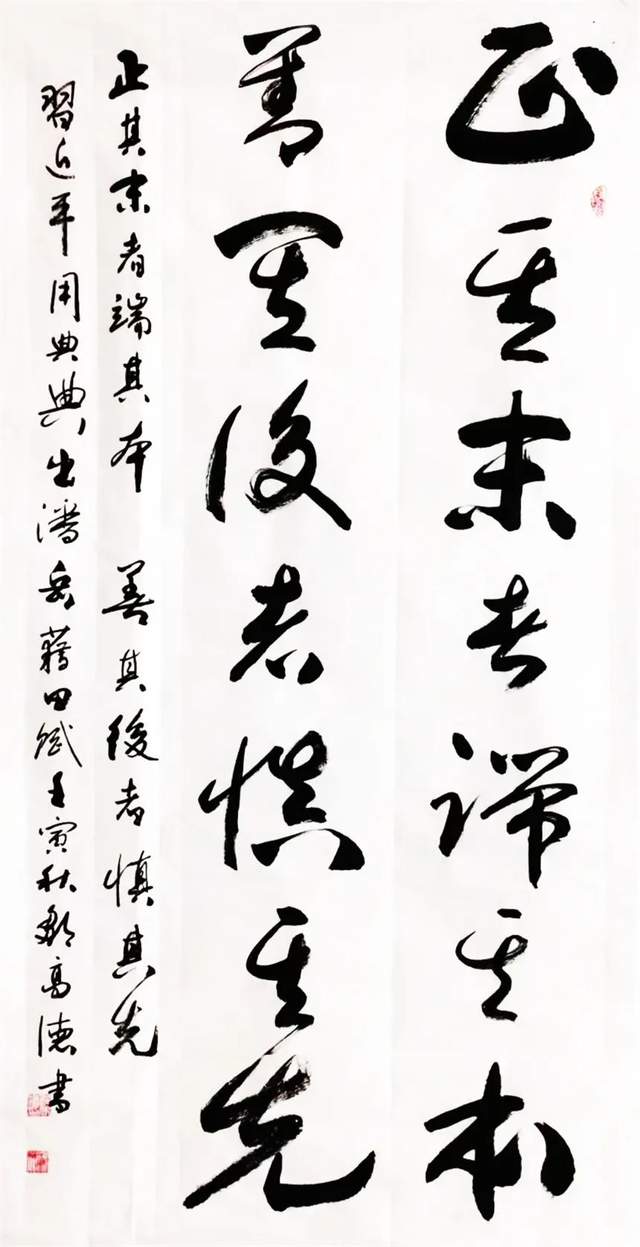 正其末者端其本
善其後者慎其先
正其末者端其本 善其後者慎其先
習近平用典典出潘岳藉田賦壬寅秋高德書